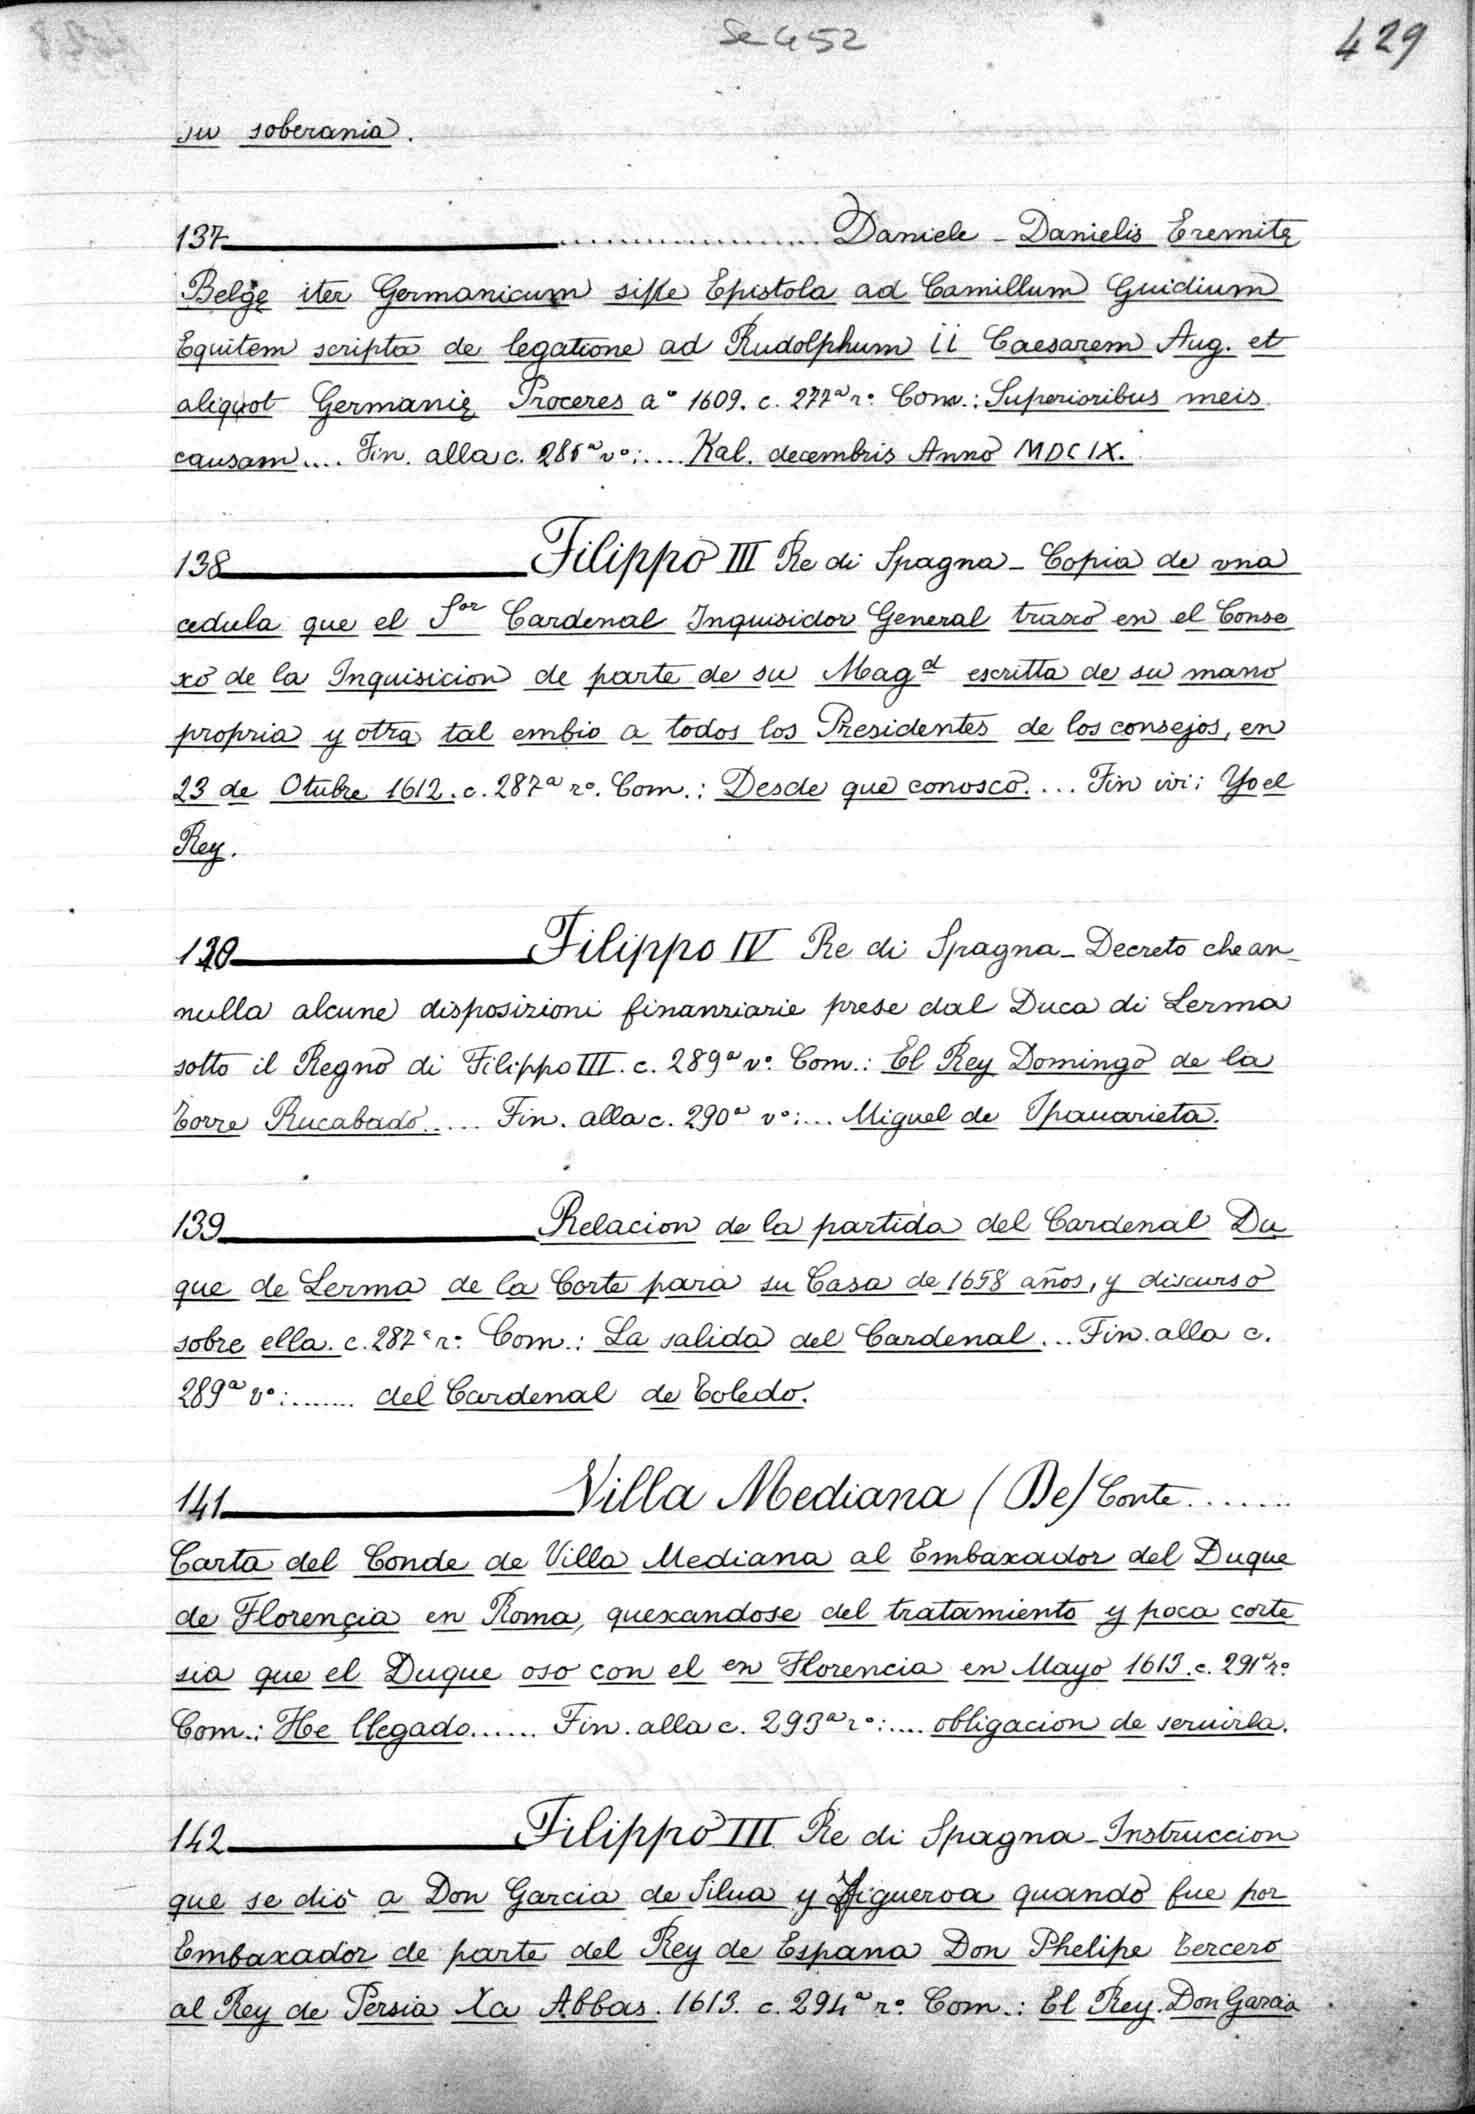 Se 452
429
su soberania.
137 .................... Daniele - Danielis Eremitę
Belgę iter Germanicum siste Epistola ad Camillum Guidium
Equitem scripta de legatione ad Rudolphum ii Caesarem Aug. et
aliquot Germanię Proceres a° 1609. c. 277ª r° Com.: Superioribus meis
causam.... Fin. alla c. 286ª v°:.... Kal. decembris Anno MDCIX.
138 Filippo III Re di Spagna - Copia de vna
cedula que el Sor Cardenal Inquisidor General traxo en el Conse
xo de la Inquisicion de parte de su Magd escritta de su mano
propria y otra tal embio a todos los Presidentes de los consejos, en
23 de Otubre 1612. c. 287ª r°. Com.: Desde que conosco.... Fin ivi: Yo el
Rey.
Filippo IV Re di Spagna - Decreto che an-
nulla alcune disposizioni finanziarie prese dal Duca di Lerma
sotto il Regno di Filippo III. c. 289ª v° Com.: El Rey Domingo de la
Torre Rucabado..... Fin. alla c. 290ª v°:... Miguel de Ypauarieta.
139 Relacion de la partida del Cardenal Du
que de Lerma de la Corte para su Casa de 1658 años, y discurso
sobre ella. c. 287ª r° Com.: La salida del Cardenal... Fin. alla c.
289ª v°:....... del Cardenal de Toledo.
141 Villa Mediana (De) Conte.......
Carta del Conde de Villa Mediana al Embaxador del Duque
de Florençia en Roma, quexandose del tratamiento y poca corte
sia que el Duque oso con el en Florencia en Mayo 1613. c. 291ª r°
Com.: He llegado...... Fin. alla c. 293ª r°:.... obligacion de seruirla.
142 Filippo III Re di Spagna - Instruccion
que se dió a Don Garcia de Silua y Figueroa quando fue por
Embaxador de parte del Rey de Espana Don Phelipe Tercero
al Rey de Persia Xa Abbas. 1613. c. 294ª r° Com.: El Rey. Don Garcia